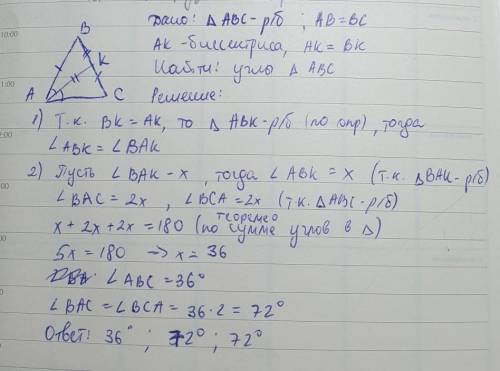 Дано: Δ ABC - р/б ; AB = BC
AK - биссектриса, AK = BK
Найти: углы Δ ABC
Решение:
B
K
A
C
1) Т.к. BK = AK, то Δ ABK - р/б (по опр), тогда
∠ABK = ∠BAK
2) Пусть ∠BAK - x, тогда ∠ABK = x (т.к. ΔBAK - р/б)
∠BAC = 2x, ∠BCA = 2x (т.к. ΔABC - р/б)
x + 2x + 2x = 180 (по теореме сумме углов в Δ)
5x = 180 → x = 36
∠ABC = 36°
∠BAC = ∠BCA = 36·2 = 72°
Ответ: 36° ; 72° ; 72°
10:00